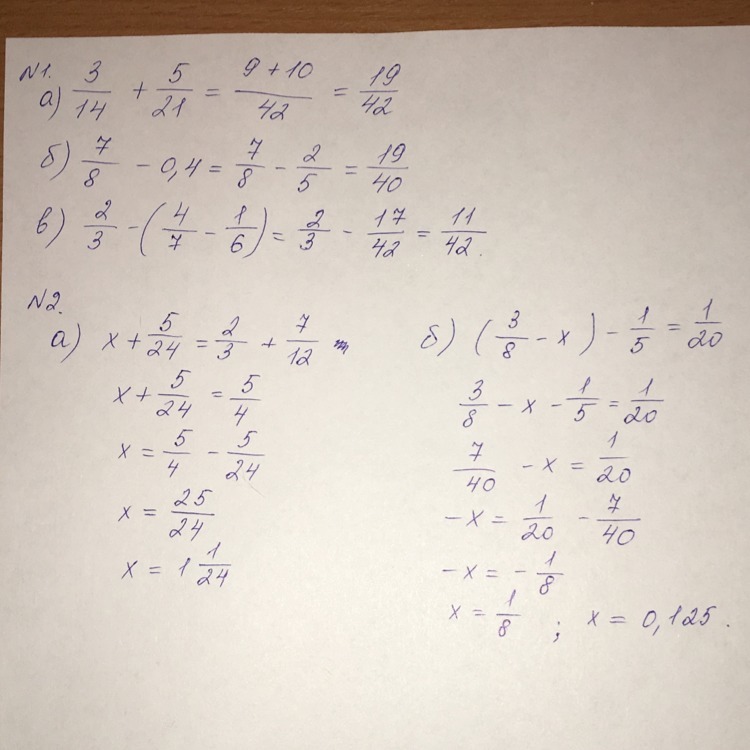 №1.
а) 3/14 + 5/21 = (9 + 10)/42 = 19/42
б) 7/8 - 0,4 = 7/8 - 2/5 = 19/40
в) 2/3 - (4/7 - 1/6) = 2/3 - 17/42 = 11/42.
№2.
а) x + 5/24 = 2/3 + 7/12
x + 5/24 = 5/4
x = 5/4 - 5/24
x = 25/24
x = 1 1/24
б) (3/8 - x) - 1/5 = 1/20
3/8 - x - 1/5 = 1/20
7/40 - x = 1/20
-x = 1/20 - 7/40
-x = - 1/8
x = 1/8 ; x = 0,125.